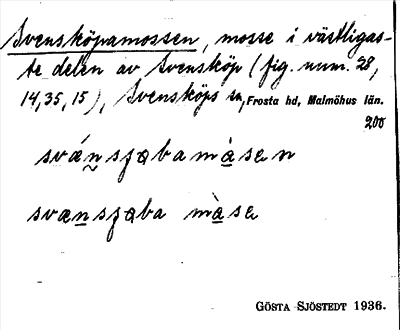 Svensköpamossen, mosse i västligas-
te delen av Svensköp (fig. num. 28,
14, 35, 15), Svensköps sn, Frosta hd, Malmöhus län.
200
svánsʃøbamåsen
svænsʃøba måse
GÖSTA SJÖSTEDT 1936.